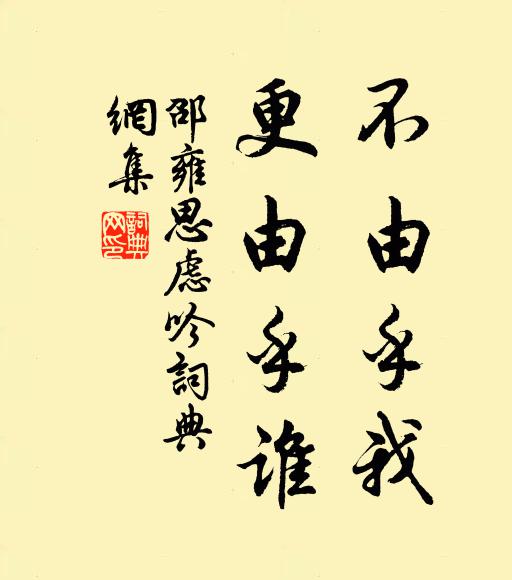 不由乎我
更由乎誰
邵雍思慮吟詞典
網集
詞典
网印